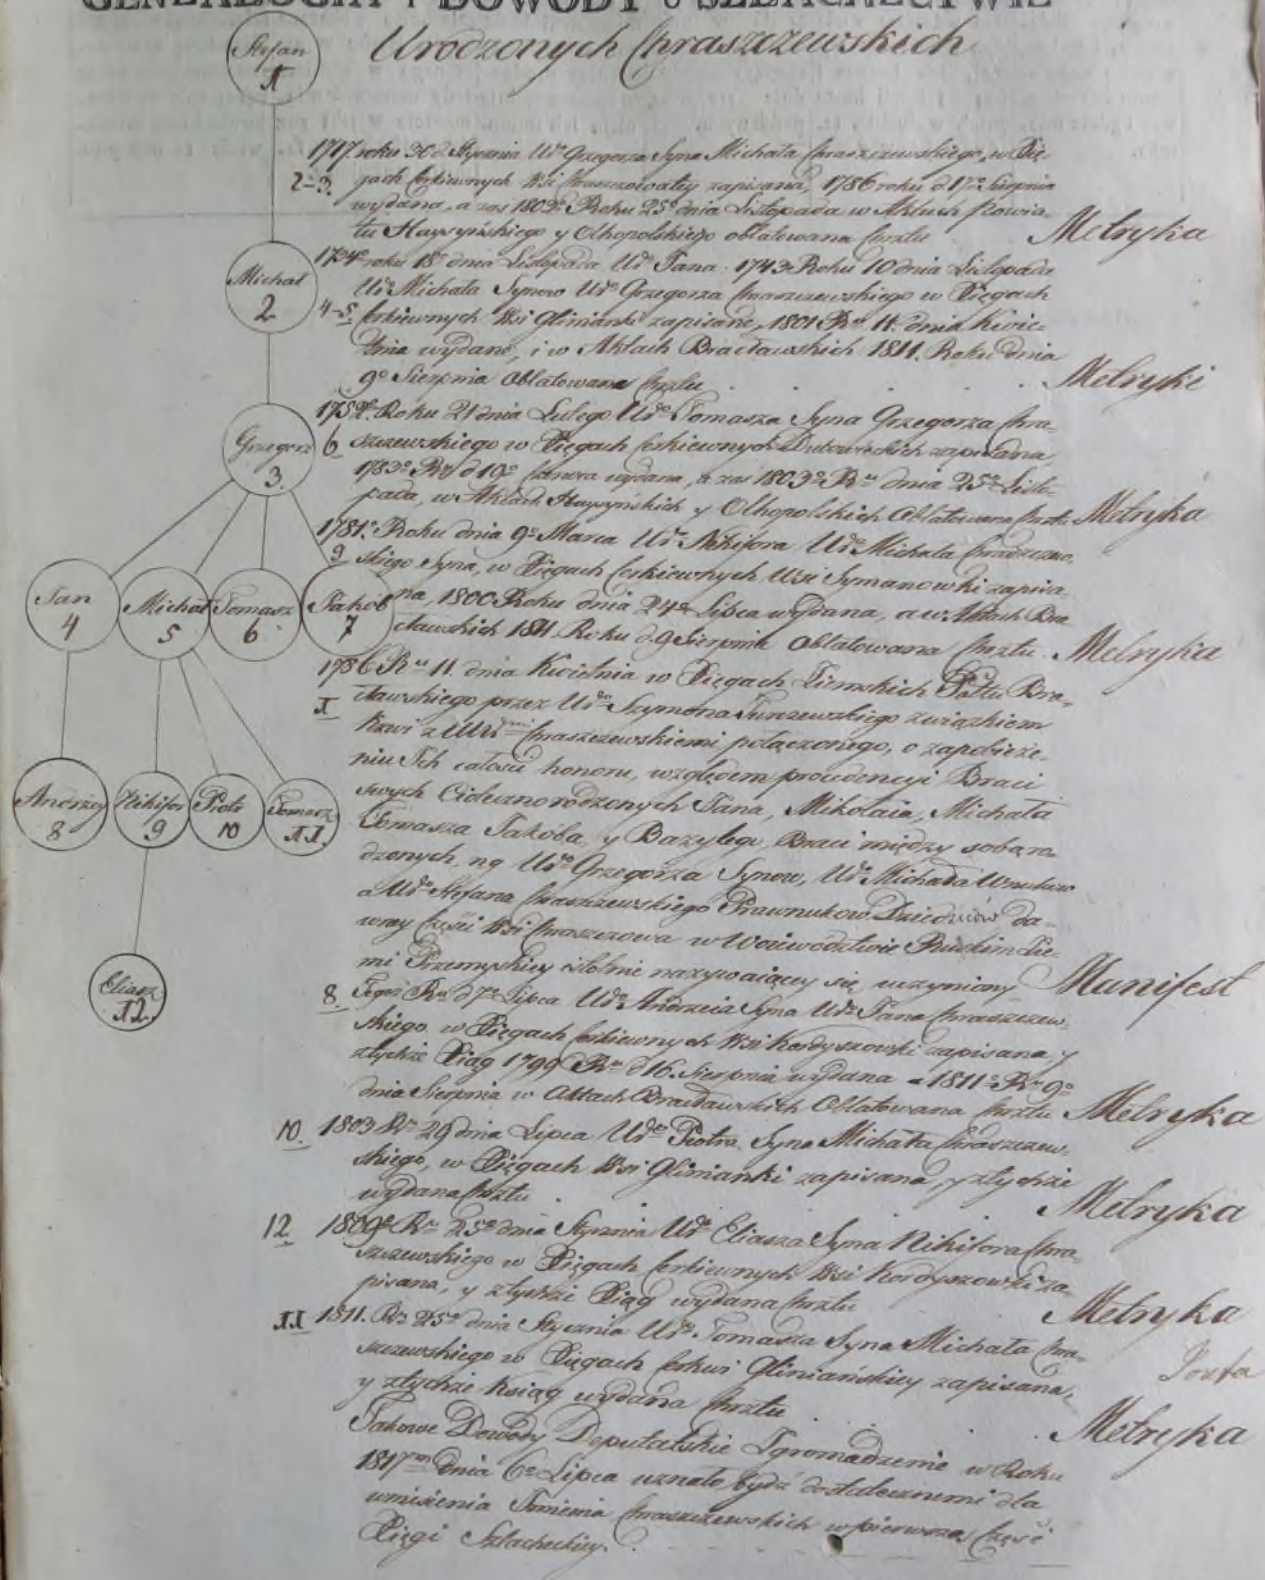 GENEALOGIA Y DOWODY O SZLACHECTWIE
Urodzonych Chraszczewskich
Stefan
1
1717 roku 30 d. Stycznia Ur° Grzegorza Syna Michała Chraszczewskiego, w Xię-
2-3. gach Cerkiewnych Wsi zapisana, 1786 roku d 17° Sierpnia
wydana, a zas 1803° Roku 25° dnia Listopada w Aktach Powia-
tu Haysyńskiego y Olhopolskiego oblatowana Chrztu Metryka
Michał
2
roku 18° dnia Listopada Ur° Jana. 1743 Roku 10 dnia Listopada
Ur° Michała Synow Ur° Grzegorza Chraszczewskiego w Xięgach
4-5. Cerkiewnych Wsi Glinianki zapisane, 1801 R^u 11. dnia Kwie-
tnia wydane, i w Aktach Bracławskich 1811. Roku dnia
9° Sierpnia Oblatowane Chrztu Metryki
Grzegorz
3.
1752° Roku 21 dnia Lutego Ur° Tomasza Syna Grzegorza Chra-
6 szczewskiego w Xięgach Cerkiewnych zapisana
1783° R^u d 19° Czerwca wydana, a zas 1803° R^u dnia 25° Listo-
pada, w Aktach Haysyńskich y Olhopolskich Oblatowana Chrztu Metryka
1781° Roku dnia 9° Marca Ur° Nikifora Ur° Michała Chraszczew-
9 skiego Syna, w Xięgach Cerkiewnych Wsi Symanowki zapisa-
na, 1800 Roku dnia 24° Lipca wydana, a w Aktach Bra-
cławskich 1811. Roku d. 9 Sierpnia Oblatowana Chrztu. Metryka
Jan
4
Michał
5
Tomasz
6
Jakób
7
1786 R^u 11. dnia Kwietnia w Xięgach Ziemskich Pttu Bra-
1 cławskiego przez Ur° Szymona związkiem
Krwi z Ur Chraszczewskiemi połączonego, o zapobieże-
niu Ich całości honoru, względem prowdencyi Braci
swych Cioteczno rodzonych Jana, Mikołaia, Michała
Tomasza Jakóba, y Bazylego, Braci między sobą ro-
dzonych, nq Ur° Grzegorza Synow, Ur° Michała Wnukow
a Ur° Stefana Chraszczewskiego Prawnukow Dziedziców da-
wney Części Wsi Chraszczowa w Woiewodztwie Ruskim Zie-
mi Przemyskiey istotnie nazywaiącey się uczyniony Manifest
Andrzey
8
Nikifor
9
Piotr
10
Tomasz
11.
8. Tegoż R^u d 7° Lipca Ur° Andrzeia Syna Ur° Jana Chraszczew-
skiego w Xięgach Cerkiewnych Wsi Kordyszowki zapisana, y
z tychże Xiąg 1799 R^u d 16. Sierpnia wydana a 1811° R^u 9°
dnia Sierpnia w Aktach Bracławskich Oblatowana Chrztu Metryka
Eliasz
12.
10. 1803 R^u 29 dnia Lipca Ur° Piotra Syna Michała Chraszczew-
skiego, w Xięgach Wsi Glinianki zapisana, y z tychże
wydana Chrztu Metryka
12. 1809° R^u 25° dnia Stycznia Ur° Eliasza Syna Nikifora Chra-
szczewskiego w Xięgach Cerkiewnych Wsi Kordyszowki za-
pisana, y z tychże Xiąg wydana Chrztu Metryka
11 1811. R^u 25° dnia Stycznia Ur° Tomasza Syna Michała Chra-
szczewskiego w Xięgach Cerkwi Gliniańskiey zapisana,
y z tychże Ksiąg wydana Chrztu Metryka
Takowe Dowody Deputatskie Zgromadzenie w Roku
1817^m dnia 6° Lipca uznało bydź dostatecznemi dla
umiesienia Imienia Chraszczewskich w pierwszą Część
Xięgi Szlacheckiey.